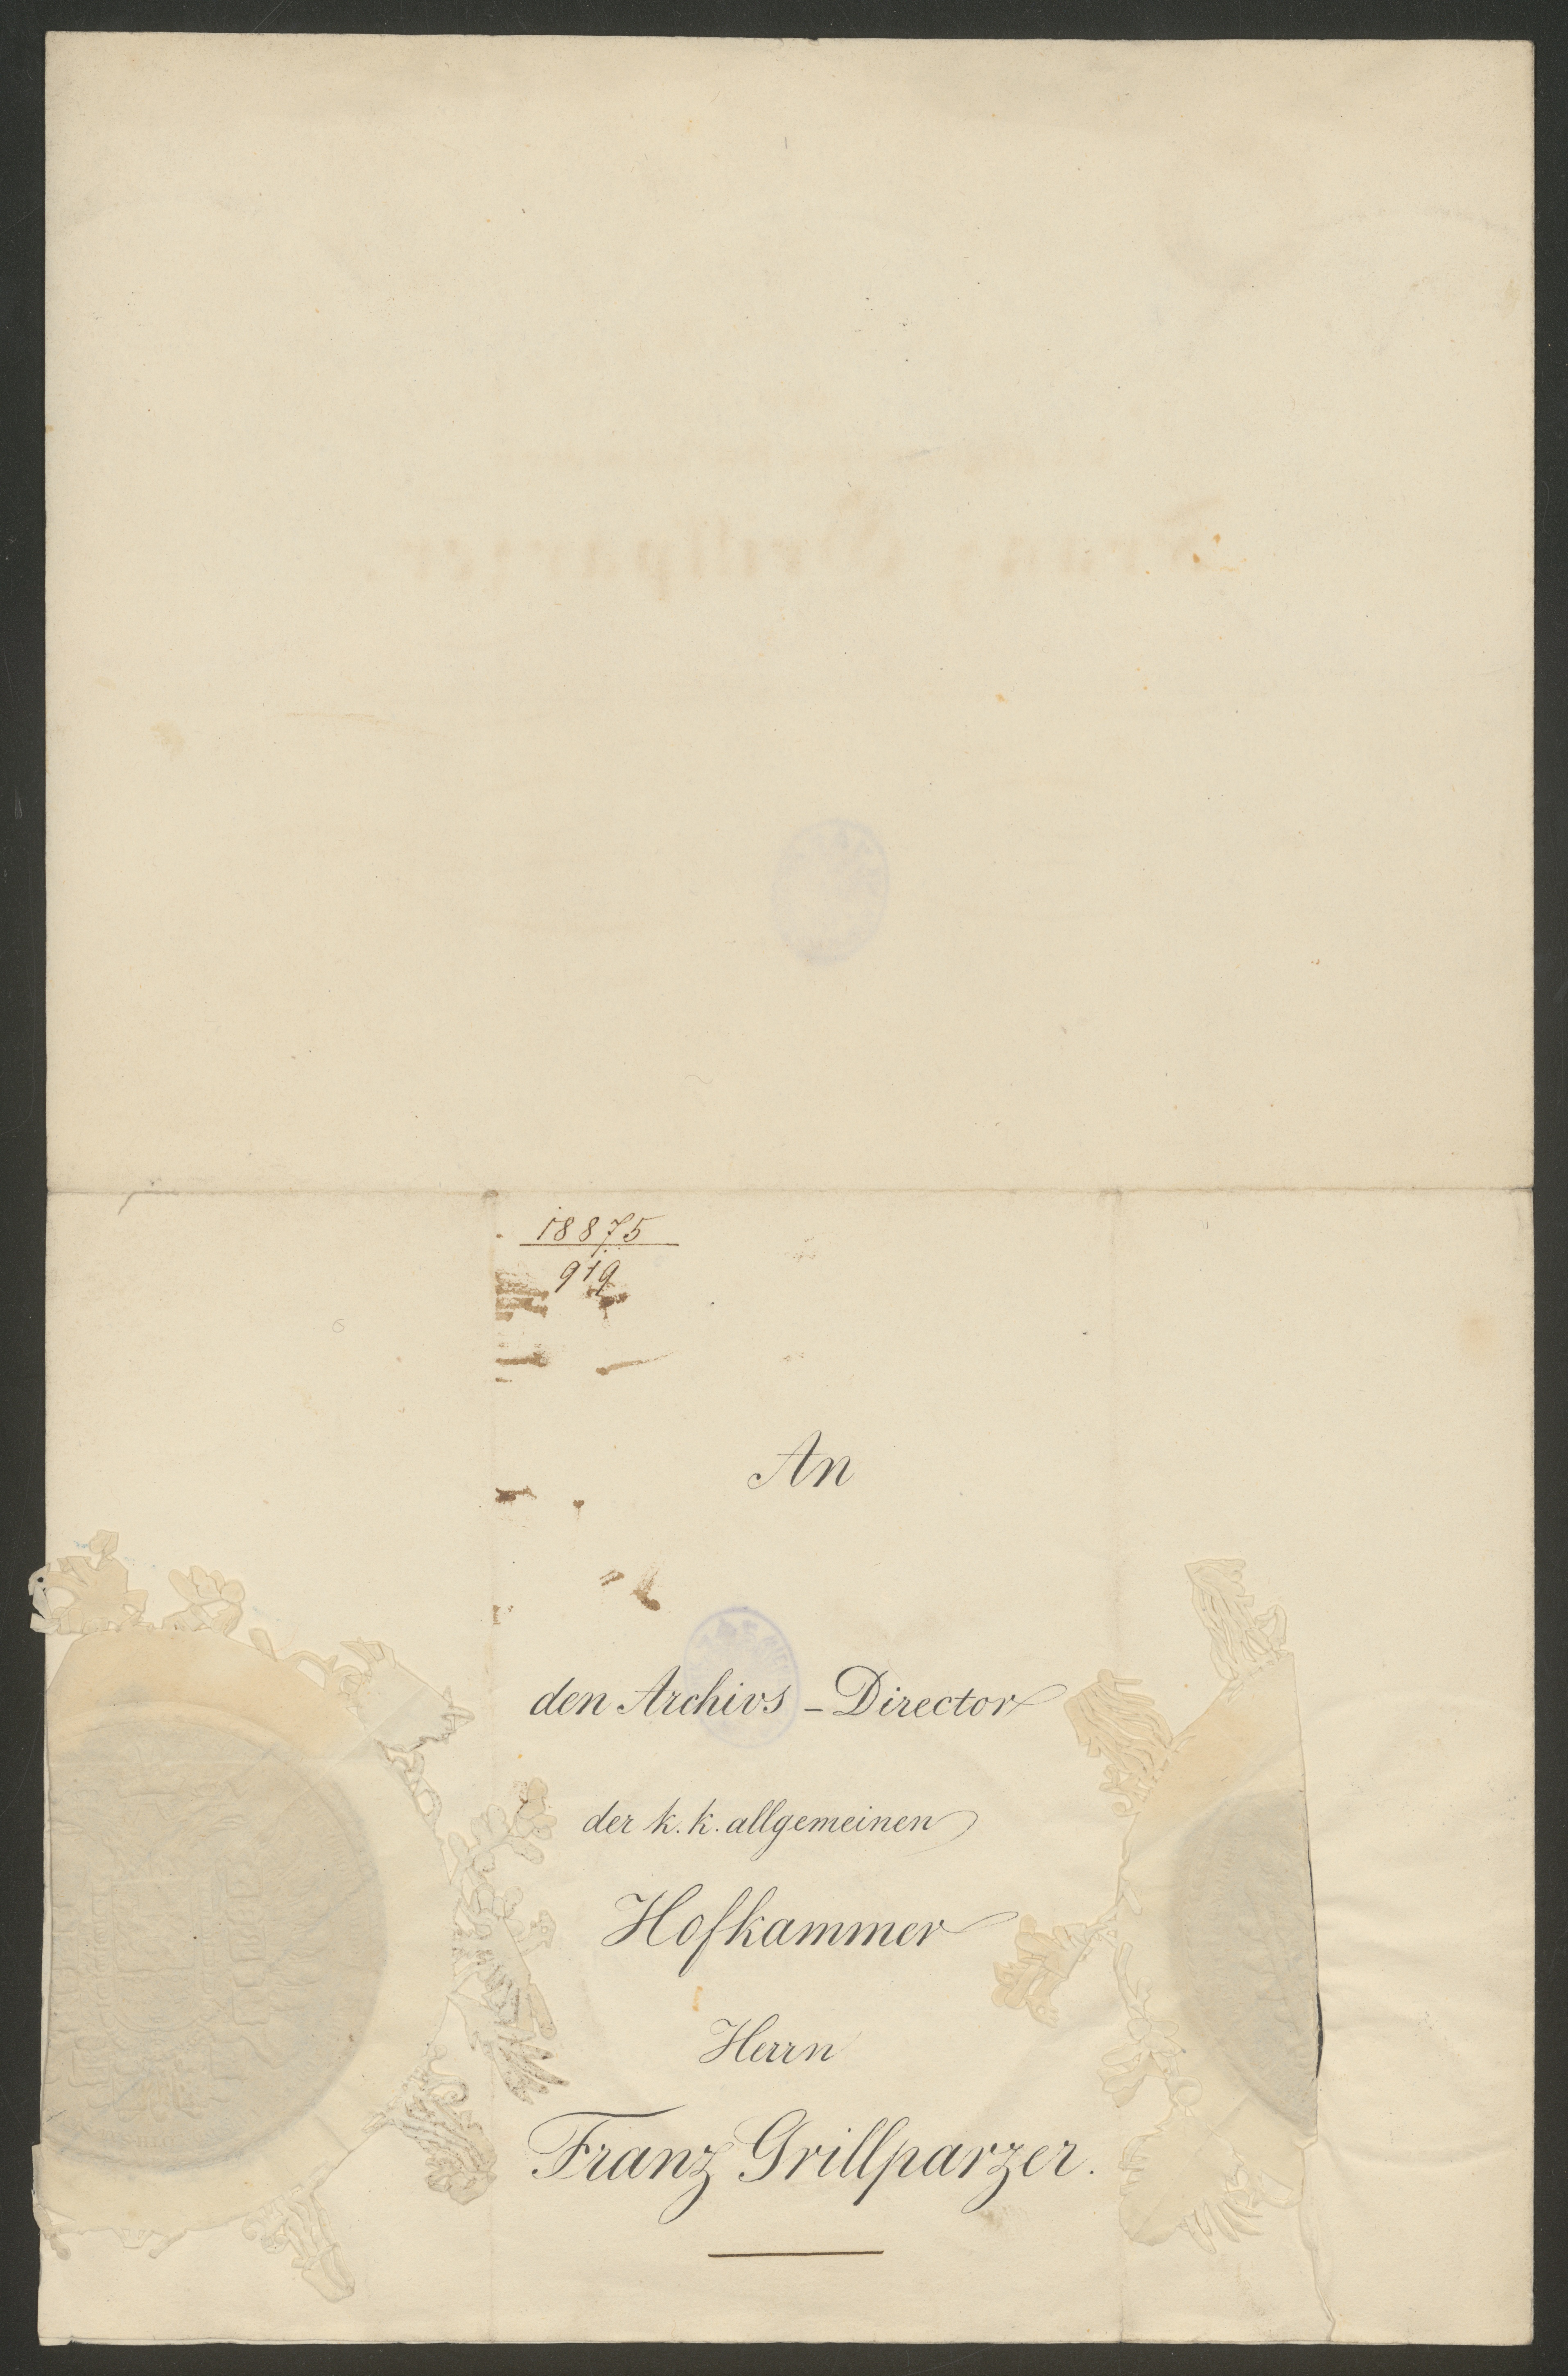 18875
919
An
den Archivs-Director
der k. k. allgemeinen
Hofkammer
Herrn
Franz Grillparzer.